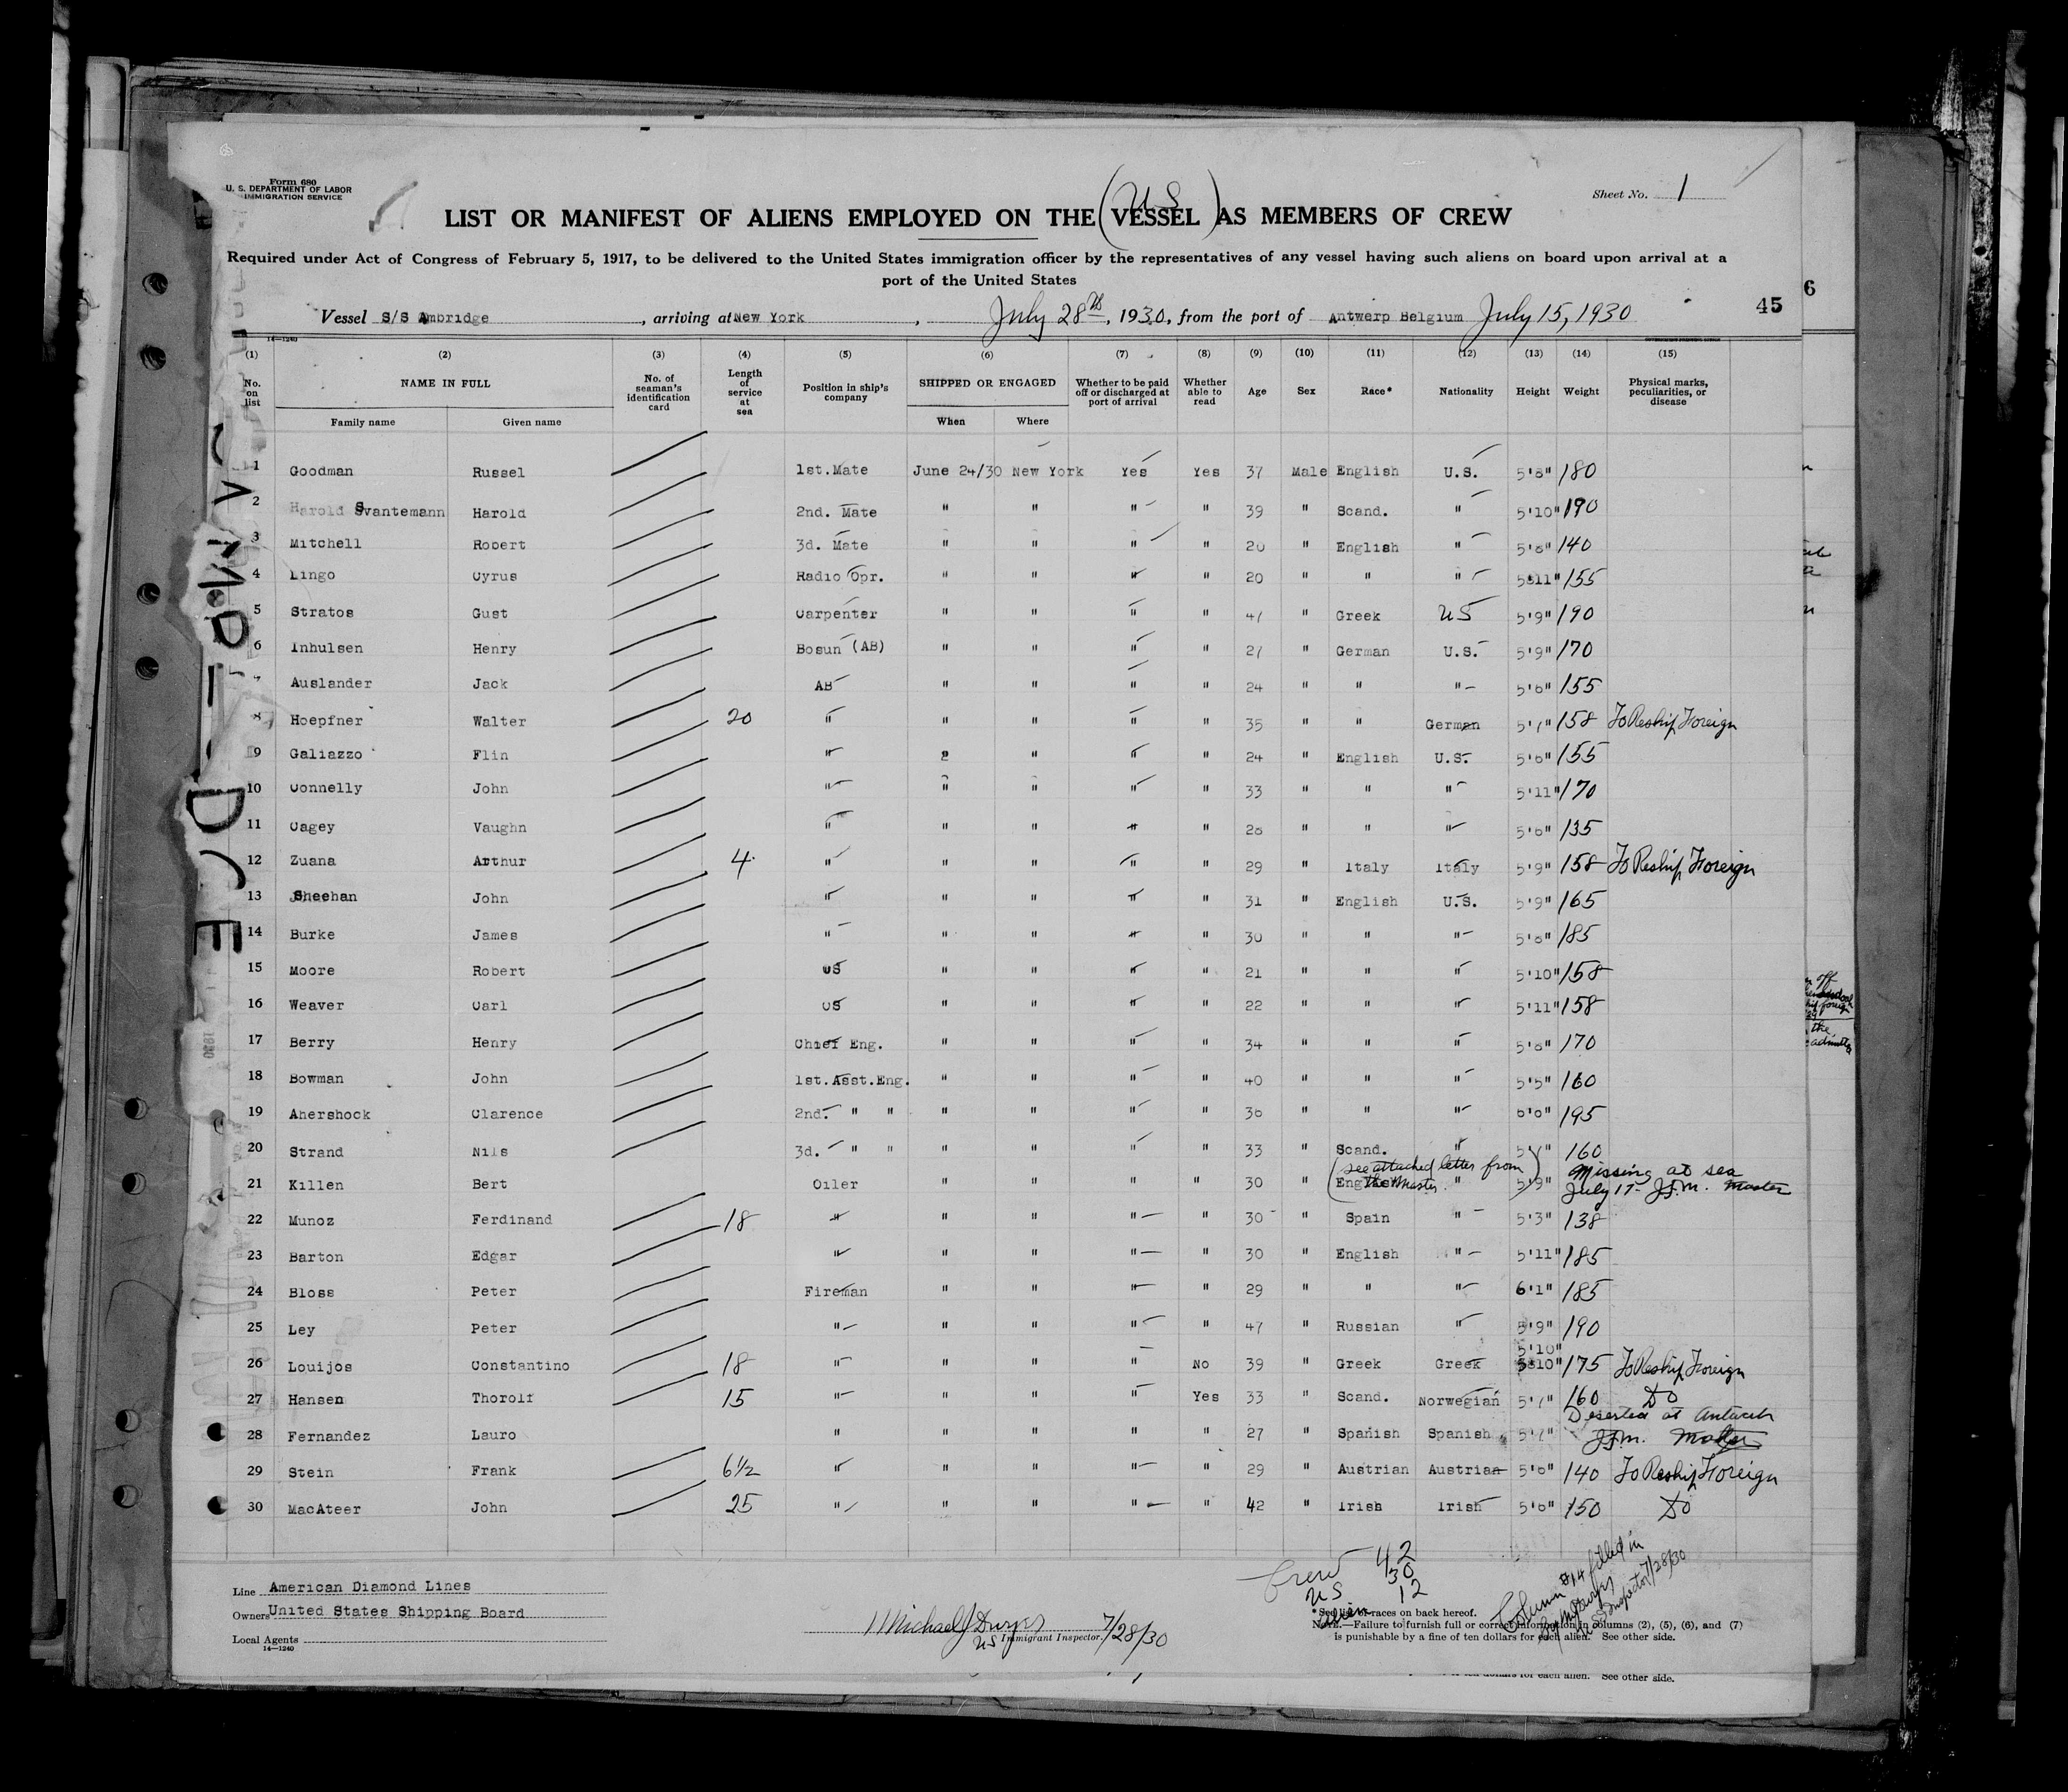 Form 680
U. S. DEPARTMENT OF LABOR
IMMIGRATION SERVICE
Sheet No. 1
(US)
LIST OR MANIFEST OF ALIENS EMPLOYED ON THE VESSEL AS MEMBERS OF CREW
Required under Act of Congress of February 5, 1917, to be delivered to the United States immigration officer by the representatives of any vessel having such aliens on board upon arrival at a
port of the United States
6
45
Vessel S/S Ambridge, arriving at New York, July 28th, 1930, from the port of Antwerp Belgium July 15, 1930
14—1240
(1) (2) (3) (4) (5) (6) (7) (8) (9) (10) (11) (12) (13) (14) (15)
No. on list NAME IN FULL No. of seaman's identification card Length of service at sea Position in ship's company SHIPPED OR ENGAGED Whether to be paid off or discharged at port of arrival Whether able to read Age Sex Race* Nationality Height Weight Physical marks, peculiarities, or disease
Family name Given name When Where
1 Goodman Russel 1st.Mate June 24/30 New York Yes Yes 37 Male English U.S. 5'8" 180
2 Harold Svantemann Harold 2nd. Mate " " " " 39 " Scand. " 5'10" 190
3 Mitchell Robert 3d. Mate " " " " 20 " English " 5'8" 140
4 Lingo Cyrus Radio Opr. " " " " 20 " " " 5'11" 155
5 Stratos Gust Carpenter " " " " 47 " Greek US 5'9" 190
6 Inhulsen Henry Bosun (AB) " " " " 27 " German U.S. 5'9" 170
7 Auslander Jack AB " " " " 24 " " " 5'6" 155
8 Hoepfner Walter 20 " " " " " 35 " " German 5'7" 158 To Reship Foreign
9 Galiazzo Flin " " " " 24 " English U.S. 5'6" 155
10 Connelly John " " " " " 33 " " " 5'11" 170
11 Cagey Vaughn " " " " " 26 " " " 5'6" 135
12 Zuana Arthur 4 " " " " " 29 " Italy Italy 5'9" 158 To Reship Foreign
13 Sheehan John " " " " " 31 " English U.S. 5'9" 165
14 Burke James " " " " " 30 " " " 5'8" 185
15 Moore Robert OS " " " " 21 " " " 5'10" 158
16 Weaver Carl OS " " " " 22 " " " 5'11" 158
17 Berry Henry Chief Eng. " " " " 34 " " " 5'8" 170
18 Bowman John 1st.Asst.Eng. " " " " 40 " " " 5'5" 160
19 Ahershock Clarence 2nd. " " " " " " 36 " " " 6'0" 195
20 Strand Nils 3d. " " " " " " 33 " Scand. " 5'7" 160
(see attached letter from the Master) Missing at sea
21 Killen Bert Oiler " " " " 30 " English " 5'9" July 17 J.F.M. Master
22 Munoz Ferdinand 18 " " " " " 30 " Spain " 5'3" 138
23 Barton Edgar " " " " " 30 " English " 5'11" 185
24 Bloss Peter Fireman " " " " 29 " " " 6'1" 185
25 Ley Peter " " " " " 47 " Russian " 5'9" 190
5'10"
26 Louijos Constantino 18 " " " " No 39 " Greek Greek 5'10" 175 To Reship Foreign
27 Hansen Thorolf 15 " " " " Yes 33 " Scand. Norwegian 5'7" 160 Do
Deserted at
28 Fernandez Lauro " " " " " 27 " Spanish Spanish 5'7" J.F.M. Master
29 Stein Frank 6½ " " " " " 29 " Austrian Austrian 5'6" 140 To Reship Foreign
30 MacAteer John 25 " " " " " 42 " Irish Irish 5'6" 150 Do
Crew 42
US 30
Alien 12
Column #14 filled in
US Inspector 7/28/30
Line American Diamond Lines
Owners United States Shipping Board
Local Agents
14—1240
Michael J
US Immigrant Inspector. 7/28/30
* See list of races on back hereof.
NOTE.—Failure to furnish full or correct information in columns (2), (5), (6), and (7)
is punishable by a fine of ten dollars for each alien. See other side.
ten dollars for each alien. See other side.